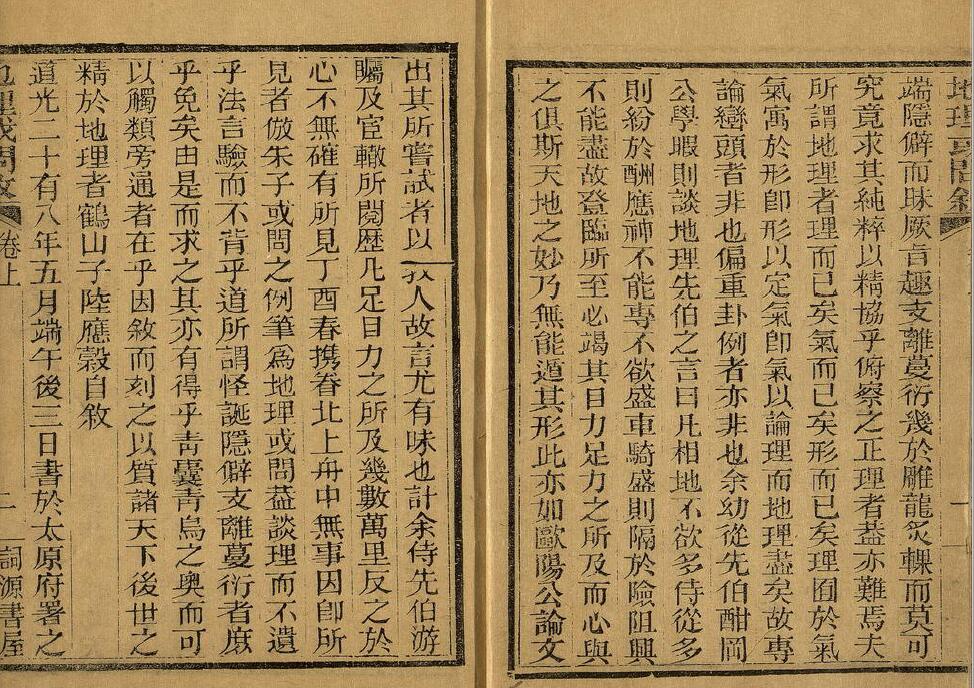 地理或問敘
端隱僻而昧厥旨趣支離蔓衍幾於雕龍炙輠而莫可
究竟求其純粹以精協乎俯察之正理者葢亦難焉夫
所謂地理者理而已矣氣而已矣形而已矣理囿於氣
氣寓於形卽形以定氣卽氣以論理而地理盡矣故專
論巒頭者非也偏重卦例者亦非也余幼從先伯酣岡
公學暇則談地理先伯之言曰凡相地不欲多侍從多
則紛於酬應神不能專不欲盛車騎盛則隔於險阻興
不能盡故登臨所至必竭其目力足力之所及而心與
之俱斯天地之妙乃無能遁其形此亦如歐陽公論文
出其所嘗試者以
人故言尤有味也計余侍先伯游
矚及宦轍所閱歷凡足目力之所及幾數萬里反之於
心不無確有所見丁酉春携眷北上舟中無事因卽所
見者倣朱子或問之例筆爲地理或問葢談理而不遺
乎法言驗而不背乎道所謂怪誕隱僻支離蔓衍者庶
乎免矣由是而求之其亦有得乎靑囊靑烏之奧而可
以觸類旁通者在乎因敘而刻之以質諸天下後世之
精於地理者鶴山子陸應穀自敘
道光二十有八年五月端午後三日書於太原府署之
地理或問敘
卷上
二
詞源書屋